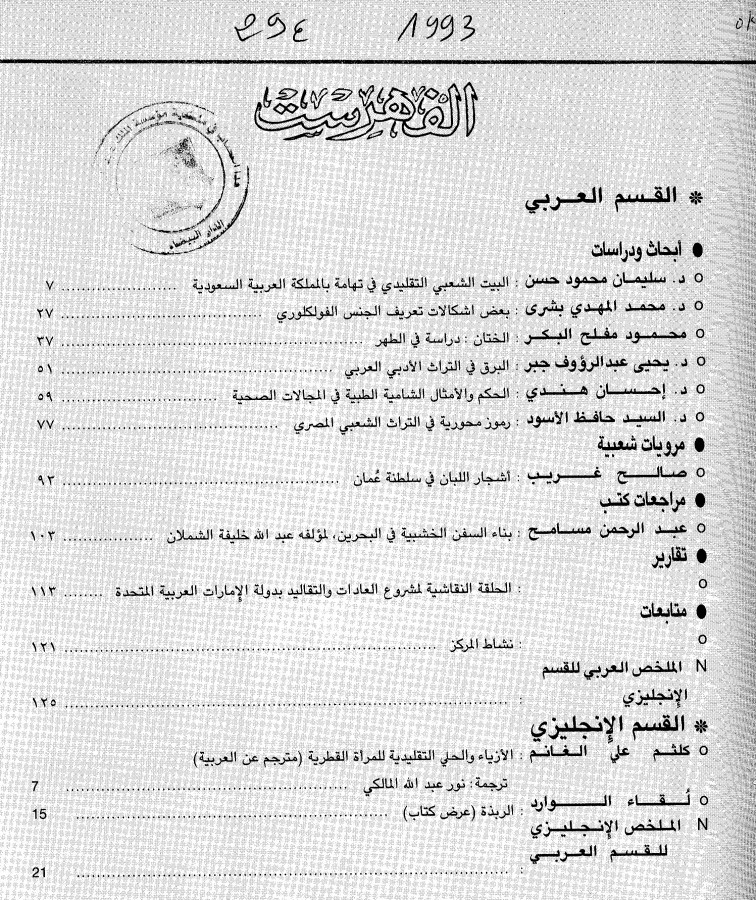 ع٩٤ 1993 ok
الفهرست
الدار البيضاء
* القسم العربي
● أبحاث ودراسات
o د. سليمان محمود حسن : البيت الشعبي التقليدي في تهامة بالمملكة العربية السعودية ........ ٧
o د. محمد المهدي بشرى : بعض اشكالات تعريف الجنس الفولكلوري ........ ٢٧
o محمود مفلح البكر : الختان : دراسة في الطهر ........ ٣٧
o د. يحيى عبدالرؤوف جبر : البرق في التراث الأدبي العربي ........ ٥١
o د. إحسان هندي : الحكم والأمثال الشامية الطبية في المجالات الصحية ........ ٥٩
o د. السيد حافظ الأسود : رموز محورية في التراث الشعبي المصري ........ ٧٧
● مرويات شعبية
o صالح غريب : أشجار اللبان في سلطنة عُمان ........ ٩٢
● مراجعات كتب
o عبد الرحمن مسامح : بناء السفن الخشبية في البحرين، لمؤلفه عبد الله خليفة الشملان ........ ١٠٣
● تقارير
o : الحلقة النقاشية لمشروع العادات والتقاليد بدولة الإمارات العربية المتحدة ........ ١١٣
● متابعات
o : نشاط المركز ........ ١٢١
N الملخص العربي للقسم
الإنجليزي : ........ ١٢٥
* القسم الإنجليزي
o كلثم علي الغانم : الأزياء والحلي التقليدية للمرأة القطرية (مترجم عن العربية)
ترجمة: نور عبد الله المالكي ........ 7
o لُقاء الوارد : الربذة (عرض كتاب) ........ 15
N الملخص الإنجليزي
للقسم العربي
: ........ 21